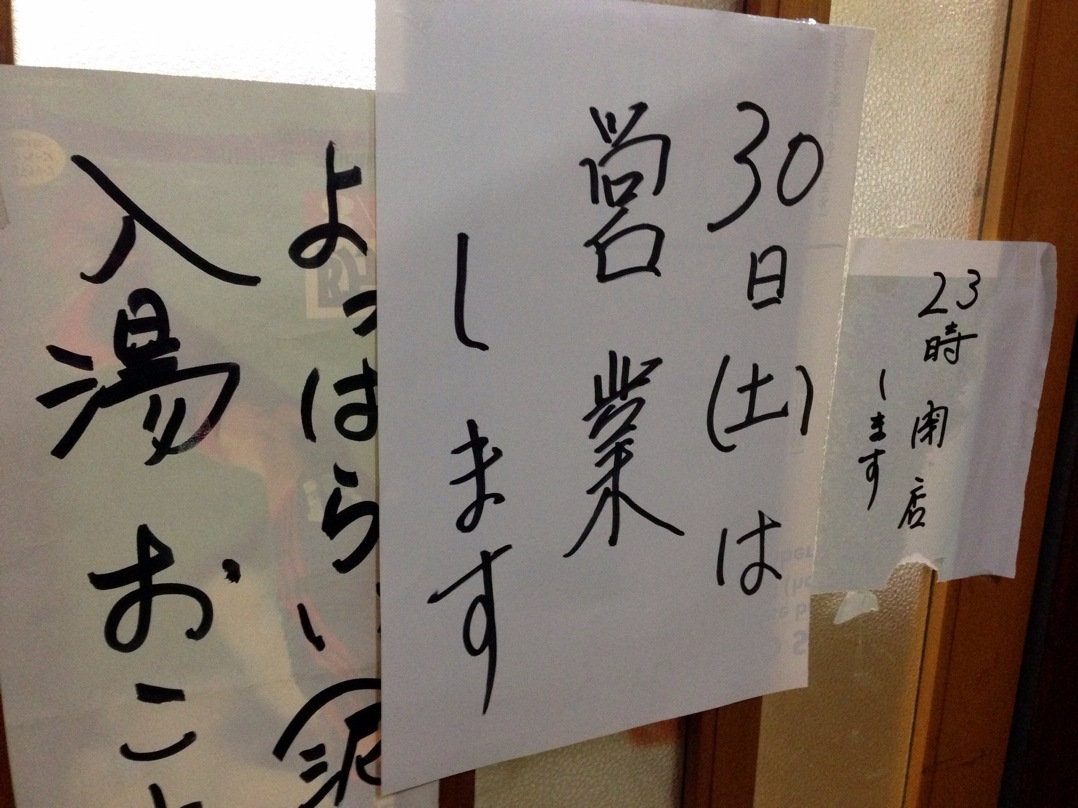 23時閉店
します
30日(土)は
営業
します
よっぱらい(泥
入湯おこと